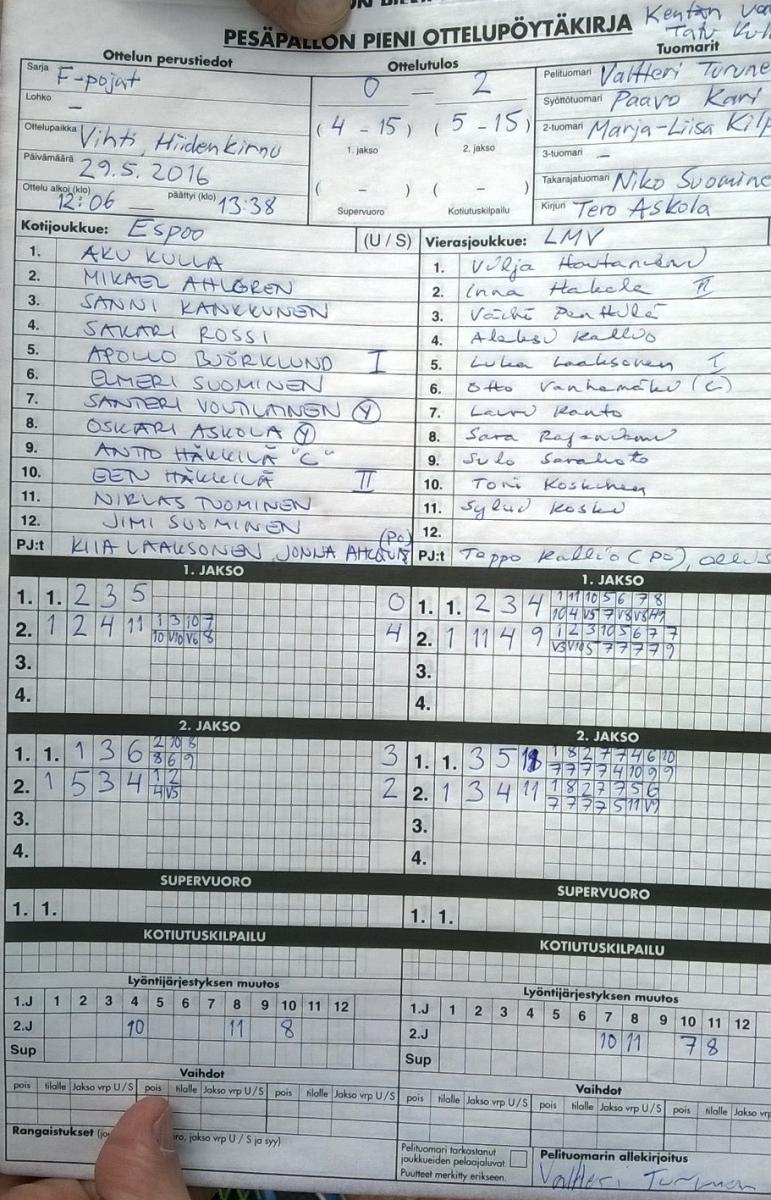 PESÄPALLON PIENI OTTELUPÖYTÄKIRJA
Kentän
Ottelun perustiedot
Ottelutulos
Tuomarit
Sarja F-pojat
Lohko –
Ottelupaikka Vihti, Hiidenkinnu
Päivämäärä 29.5.2016
Ottelu alkoi (klo) 12:06 päättyi (klo) 13:38
0 – 2
(4 - 15) (5 - 15)
1. jakso 2. jakso
( - ) ( - )
Supervuoro Kotiutuskilpailu
Pelituomari Valtteri Turune
Syöttötuomari Paavo Kari
2-tuomari Marja-Liisa Kilp
3-tuomari –
Takarajatuomari Niko Suomine
Kirjuri Tero Askola
Kotijoukkue: Espoo (U / S)
1. AKU KULLA
2. MIKAEL AHLGREN
3. SANNI KANKKUNEN
4. SAKARI ROSSI
5. APOLLO BJÖRKLUND I
6. ELMERI SUOMINEN
7. SANTERI VOUTILAINEN (Y)
8. OSKARI ASKOLA (Y)
9. ANTTO HÄKKILÄ "C"
10. EEN HÄKKILÄ II
11. NIKLAS TUOMINEN
12. JIMI SUOMINEN
PJ:t KIIA LAAKSONEN JONNA (PO)
Vierasjoukkue: LMV
1. Vilja
2. Inna Hakala II
3. Penttilä
4. Aleksi Kallio
5. Luka Laaksonen I
6. Otto Vanhamäki (C)
7. Lauri Kanto
8. Sara
9. Sulo
10. Toni Koskinen
11. Koski
12.
PJ:t Teppo Kallio (PO),
1. JAKSO
1. 1. 2 3 5 0
2. 1 2 4 11 1 3 10 7 4
10 V10 V6 8
3.
4.
2. JAKSO
1. 1. 1 3 6 2 10 8 3
8 6 9
2. 1 5 3 4 1 2 2
4 V5
3.
4.
SUPERVUORO
1. 1.
KOTIUTUSKILPAILU
Lyöntijärjestyksen muutos
1.J 1 2 3 4 5 6 7 8 9 10 11 12
2.J 10 11 8
Sup
Vaihdot
pois tilalle Jakso vrp U / S pois tilalle Jakso vrp U / S pois tilalle Jakso vrp U / S
Rangaistukset ro, jakso vrp U / S ja syy)
1. JAKSO
1. 1. 2 3 4 1 11 10 5 6 7 8
10 4 V5 7 V8 V8
2. 1 11 4 9 1 2 3 10 5 6 7 7
V3 V10 5 7 7 7 7 9
3.
4.
2. JAKSO
1. 1. 3 5 1 8 2 7 7 4 6 10
7 7 7 7 4 10 9 9
2. 1 3 4 11 1 8 2 7 7 5 6
7 7 7 7 5 11 V9
3.
4.
SUPERVUORO
1. 1.
KOTIUTUSKILPAILU
Lyöntijärjestyksen muutos
1.J 1 2 3 4 5 6 7 8 9 10 11 12
2.J 10 11 7 8
Sup
Vaihdot
pois tilalle Jakso vrp U / S pois tilalle Jakso vrp U / S pois tilalle Jakso vrp
Pelituomari tarkastanut
joukkueiden pelaajaluvat.
Puutteet merkitty erikseen.
Pelituomarin allekirjoitus
Valtteri Turunen